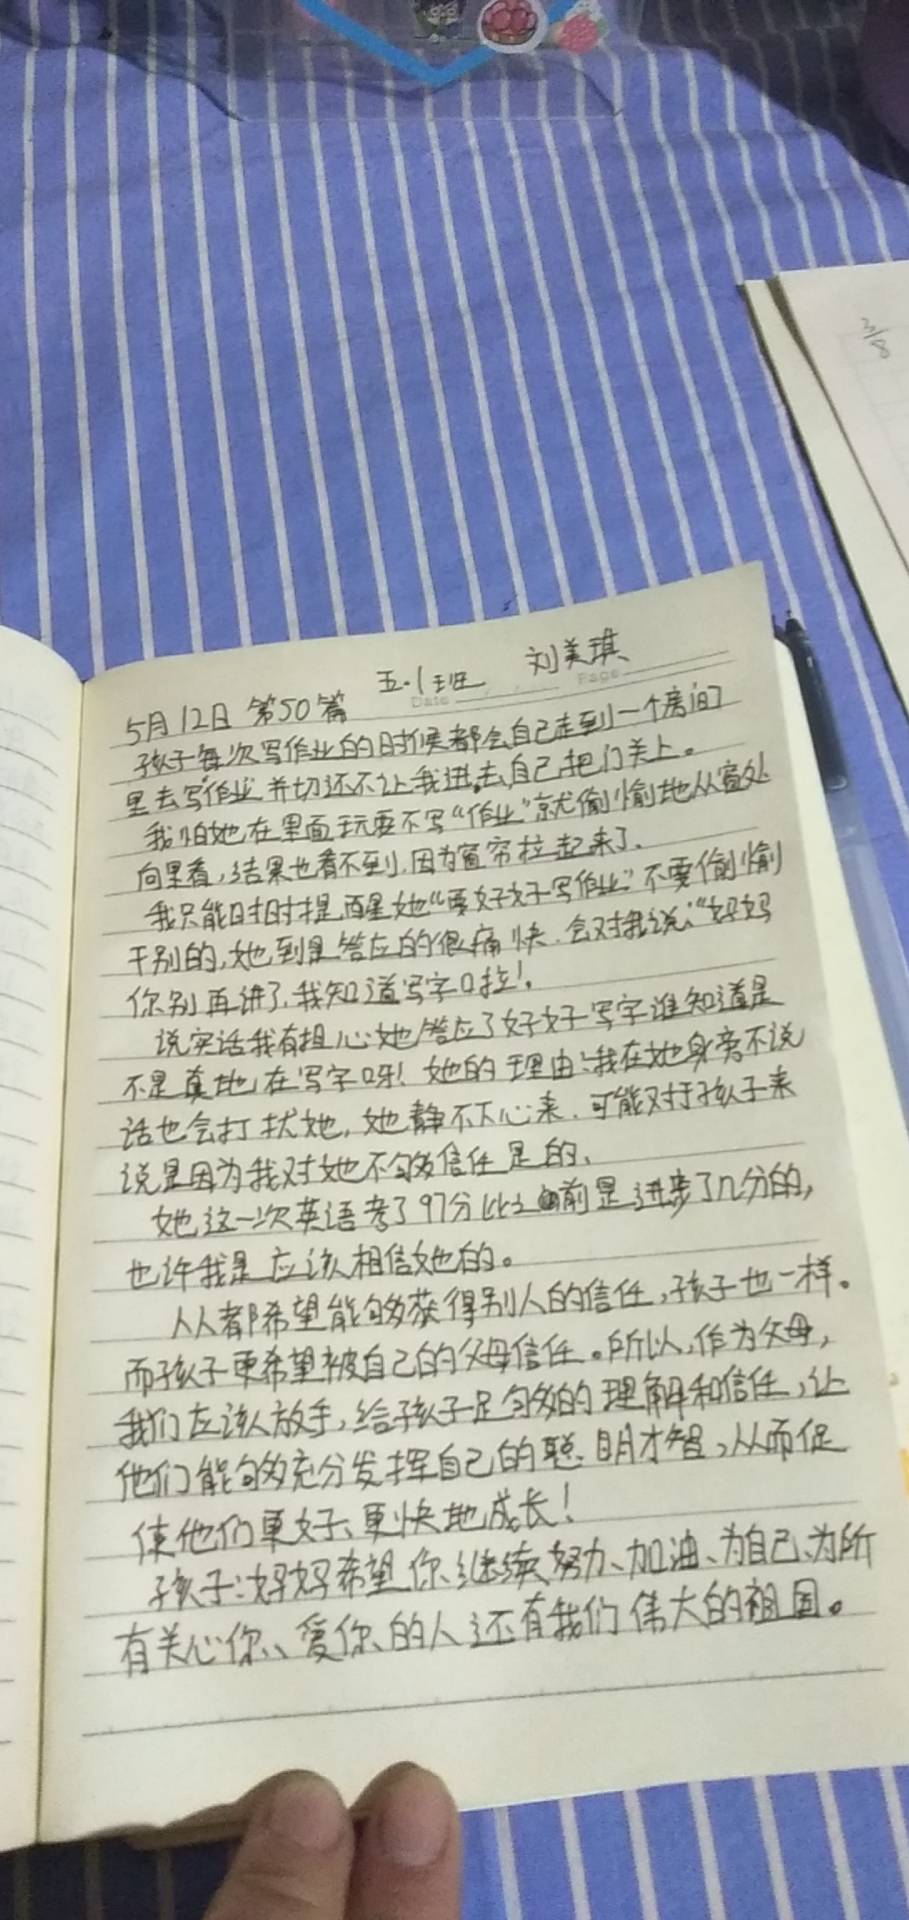 3/8
五.1班 刘美琪
Date Page
5月12日 第50篇
孩子每次写作业的时候都会自己走到一个房间
里去写作业,并切还不让我进去,自己把门关上。
我怕她在里面玩耍不写“作业”就偷偷地从窗处
向里看,结果也看不到,因为窗帘拉起来了.
我只能时时提醒她“要好好写作业”不要偷偷
干别的,她到是答应的很痛快.会对我说:“妈妈
你别再讲了,我知道写字啦!.
说实话我有担心她答应了好好写字谁知道是
不是真地在写字呀!她的理由:我在她身旁不说
话也会打扰她,她静不下心来.可能对于孩子来
说是因为我对她不够信任是的、
她这一次英语考了97分比之前是进步了几分的,
也许我是应该相信她的。
人人都希望能够获得别人的信任,孩子也一样。
而孩子更希望被自己的父母信任。所以,作为父母,
我们应该放手,给孩子足够的理解和信任,让
他们能够充分发挥自己的聪明才智,从而促
使他们更好、更快地成长!
孩子:妈妈希望你继续努力、加油、为自己、为所
有关心你、爱你的人还有我们伟大的祖国。